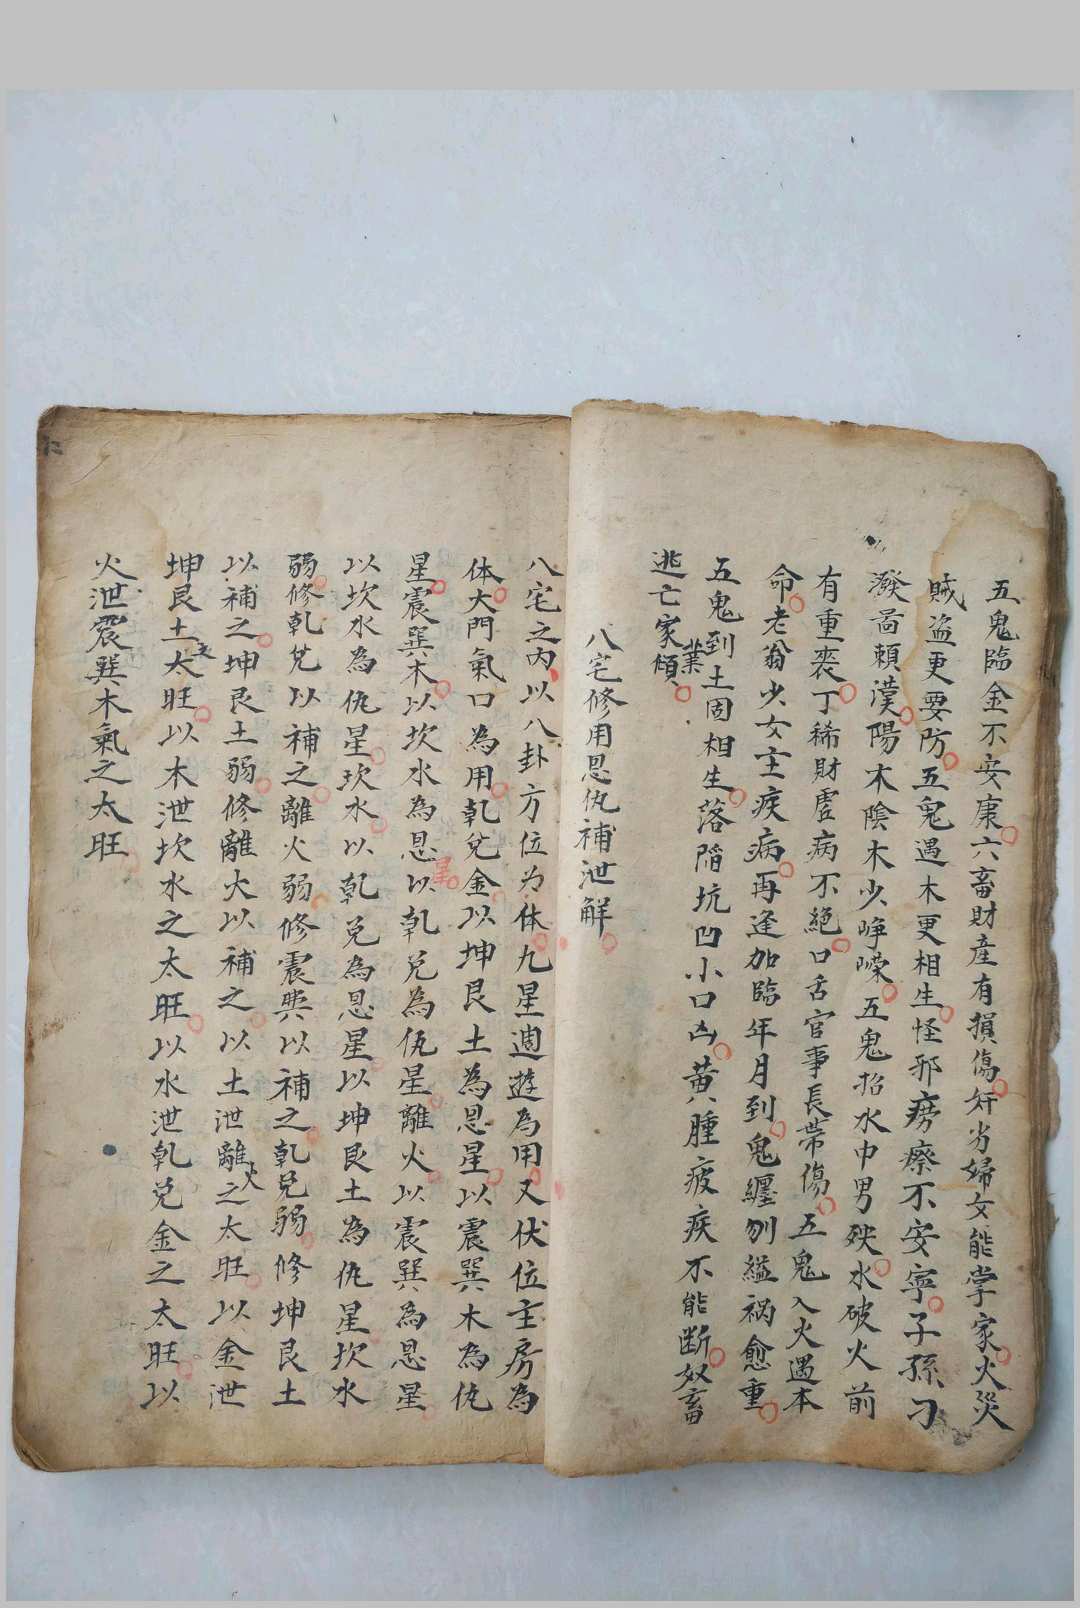 五鬼臨金不安康六畜財產有損傷奸劣婦女能掌家火災
賊盗更要防五鬼遇木更相生怪邪癆瘵不安寧子孫刁
潑啚賴漢陽木陰木少崢嶸五鬼招水中男殃水破火前
有重喪丁稀財虛病不絕口舌官事長帶傷五鬼入火遇本
命老翁少女主疾病再逢加臨年月到鬼纏刎縊禍愈重
五鬼到土固相生落陷坑凹小口凶黃腫疲疾不能斷奴畜
逃亡家業傾
八宅修用恩仇補泄解
八宅之內以八卦方位为体九星週遊為用又伏位主房為
体大門氣口為用乹兌金以坤艮土為恩星以震巽木為仇
星震巽木以坎水為恩星以乹兌為仇星離火以震巽為恩星
以坎水為仇星坎水以乹兌為恩星以坤艮土為仇星坎水
弱修乹兌以補之離火弱修震巽以補之乹兌弱修坤艮土
以補之坤艮土弱修離火以補之以土泄離火之太旺以金泄
坤艮土之太旺以木泄坎水之太旺以水泄乹兌金之太旺以
火泄震巽木氣之太旺